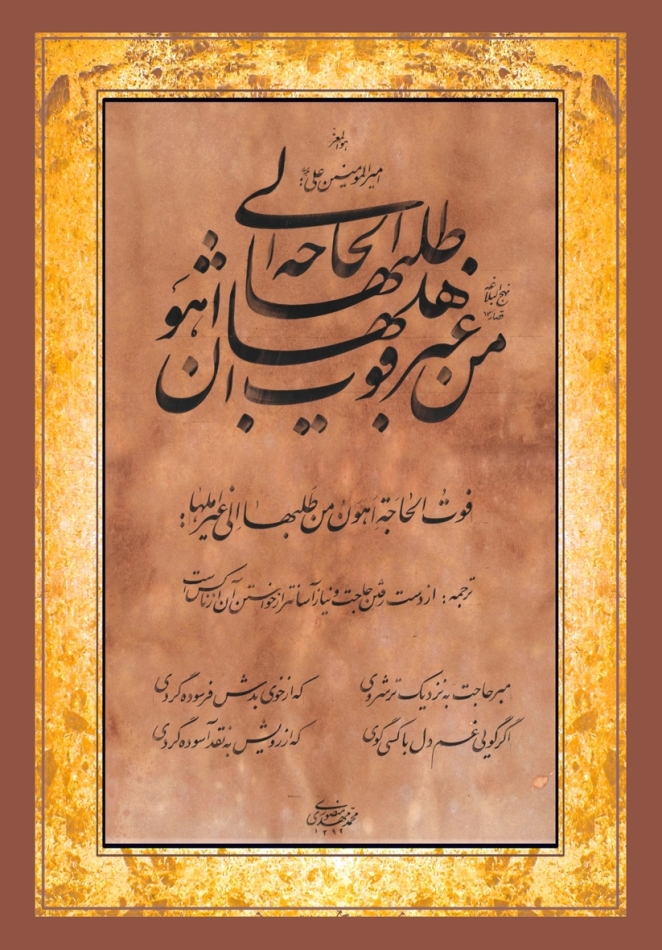 هوالمعز
امیرالمومنین علی؏:
فوت الحاجه اهون من طلبها الی غیر اهلها
نهج البلاغه
قصار
فوتُ الحاجَة اَهوَنُ من طَلَبِها اِلیٰ غیرِ اهلِها:
ترجمه: از دست رفتن حاجت و نیاز آسانتر از خواستن آن از ناکس است
مبر حاجت به نزدیک ترشروی که از خوی بدش فرسوده گردی
اگر گویی غم دل با کسی گوی که از رویش به نقد آسوده گردی
محمدمهدی منصوری
۱۳۹۲